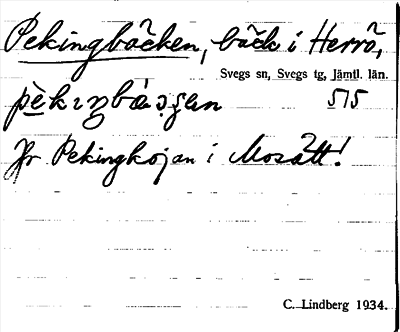 Pekingbäcken, bäck i Herrö,
Svegs sn, Svegs tg, Jämtl. län.
5/5
Jfr Pekingkojan i Mosätt!
C. Lindberg 1934.